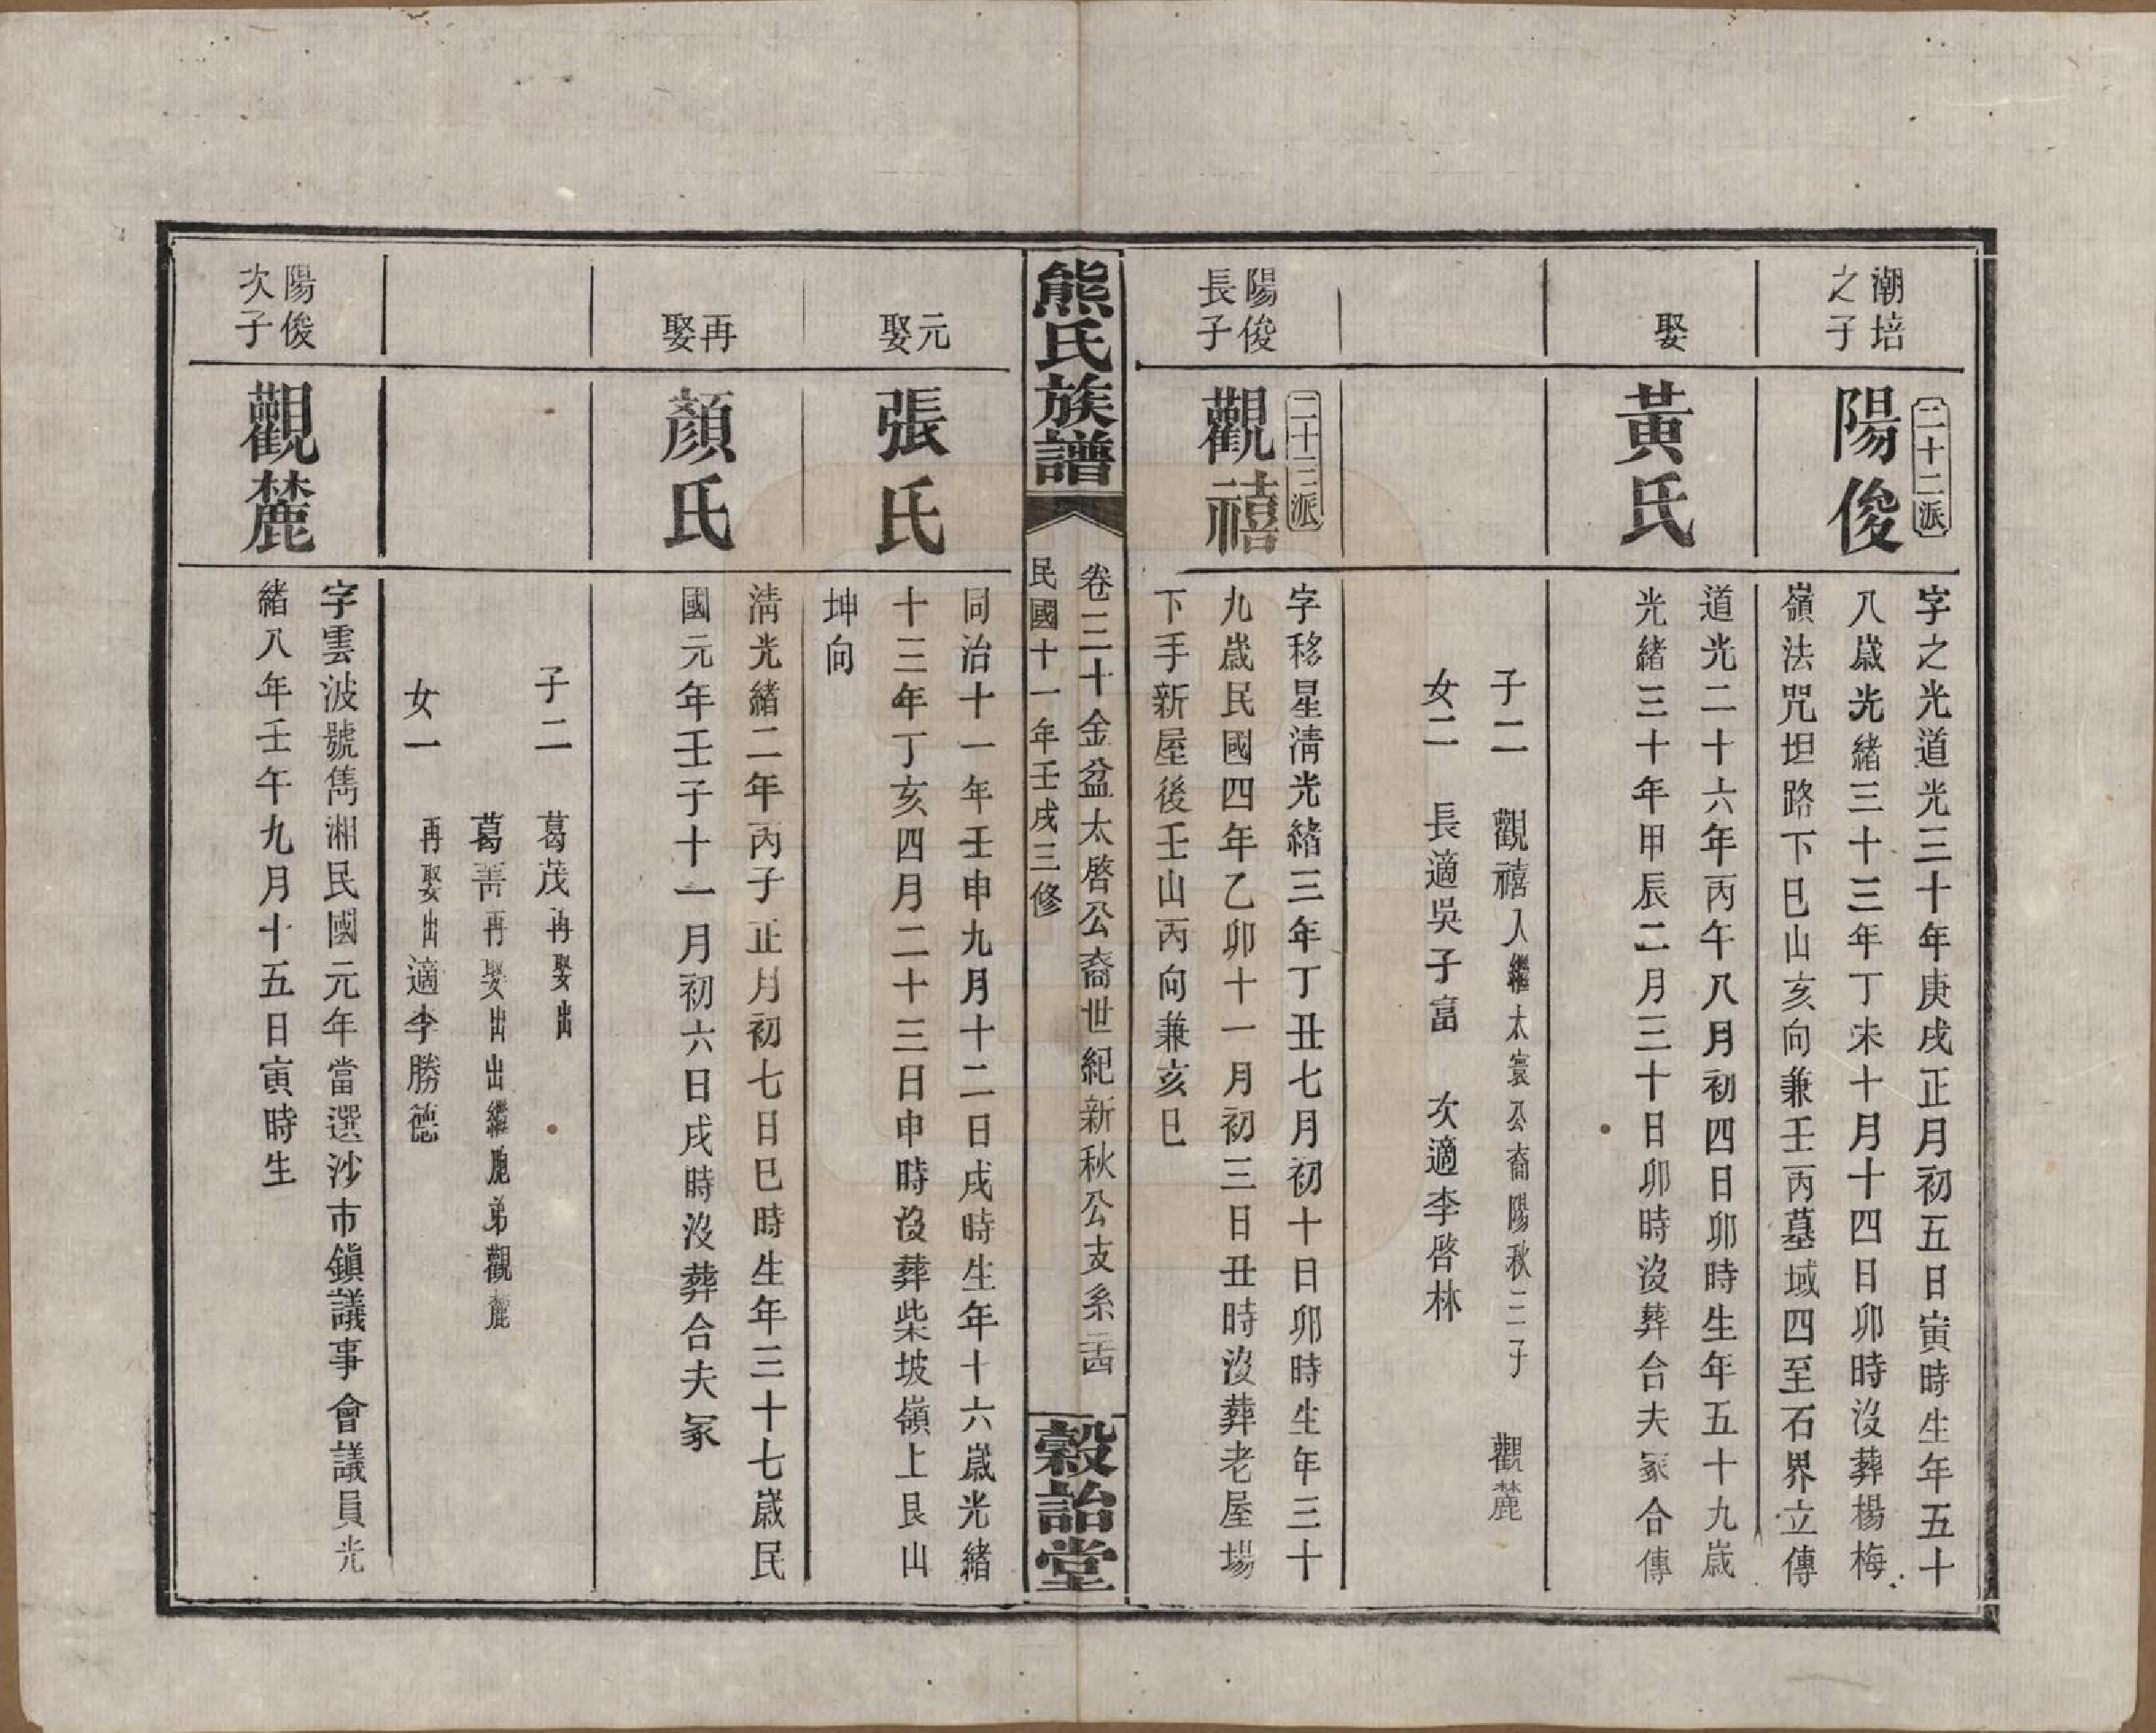 潮培
之子
二十二派
陽俊
字之光道光三十年庚戌正月初五日寅時生年五十
八歲光緒三十三年丁未十月十四日卯時沒葬楊梅
嶺法咒坦路下巳山亥向兼壬丙墓域四至石界立傳
娶
黃氏
道光二十六年丙午八月初四日卯時生年五十九歲
光緒三十年甲辰二月三十日卯時沒葬合夫冢合傳
子二 觀禧入繼太寰公裔陽秋三子 觀麓
女二 長適吳子富 次適李啓林
陽俊
長子
二十三派
觀禧
字移星清光緒三年丁丑七月初十日卯時生年三十
九歲民國四年乙卯十一月初三日丑時沒葬老屋場
下手新屋後壬山丙向兼亥巳
熊氏族譜
卷三十金盆太啓公裔世紀新秋公支系
民國十一年壬戌三修
穀詒堂
元
娶
張氏
同治十一年壬申九月十二日戌時生年十六歲光緒
十三年丁亥四月二十三日申時沒葬柴坡嶺上艮山
坤向
再
娶
顏氏
清光緒二年丙子正月初七日巳時生年三十七歲民
國元年壬子十一月初六日戌時沒葬合夫冢
子二 葛茂再娶出
葛菁再娶出出繼胞弟觀麓
女一 再娶出適李勝德
陽俊
次子
觀麓
字雲波號雋湘民國元年當選沙市鎮議事會議員光
緒八年壬午九月十五日寅時生